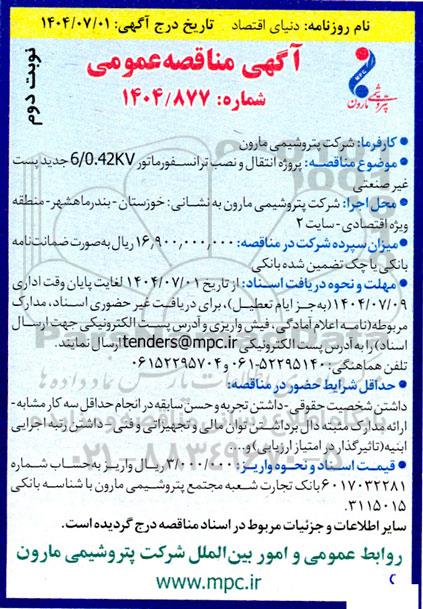 نام روزنامه: دنیای اقتصاد تاریخ درج آگهی: ۱۴۰۴/۰۷/۰۱
نوبت دوم
آگهی مناقصه عمومی
شماره: ۱۴۰۴/۸۷۷
MPC
پتروشیمی مارون
● کارفرما: شرکت پتروشیمی مارون
● موضوع مناقصه: پروژه انتقال و نصب ترانسفورماتور 6/0.42KV جدید پست
غیر صنعتی
● محل اجرا: شرکت پتروشیمی مارون به نشانی: خوزستان - بندرماهشهر - منطقه
ویژه اقتصادی - سایت ۲
● میزان سپرده شرکت در مناقصه: ۱۶,۹۰۰,۰۰۰,۰۰۰ ریال به‌صورت ضمانت‌نامه
بانکی یا چک تضمین شده بانکی
● مهلت و نحوه دریافت اسناد: از تاریخ ۱۴۰۴/۰۷/۰۱ لغایت پایان وقت اداری
۱۴۰۴/۰۷/۰۹ (به‌جز ایام تعطیل)، برای دریافت غیر حضوری اسناد، مدارک
مربوطه (نامه اعلام آمادگی، فیش واریزی و آدرس پست الکترونیکی جهت ارسال
اسناد) را به آدرس پست الکترونیکی tenders@mpc.ir ارسال نمایند.
تلفن هماهنگی: ۵۲۲۹۵۱۴۰-۰۶۱ و ۰۶۱۵۲۲۹۵۷۰۴
● حداقل شرایط حضور در مناقصه:
داشتن شخصیت حقوقی - داشتن تجربه و حسن سابقه در انجام حداقل سه کار مشابه -
ارائه مدارک مثبته دال بر داشتن توان مالی و تجهیزاتی و فنی - داشتن رتبه اجرایی
ابنیه (تاثیرگذار در امتیاز ارزیابی) و....
● قیمت اسناد و نحوه واریز: ۳/۰۰۰/۰۰۰ ریال واریز به حساب شماره
۶۰۱۷۰۳۲۲۸۱ بانک تجارت شعبه مجتمع پتروشیمی مارون با شناسه بانکی
۳۱۱۵۰۱۵.
سایر اطلاعات و جزئیات مربوط در اسناد مناقصه درج گردیده است.
روابط عمومی و امور بین‌الملل شرکت پتروشیمی مارون
www.mpc.ir